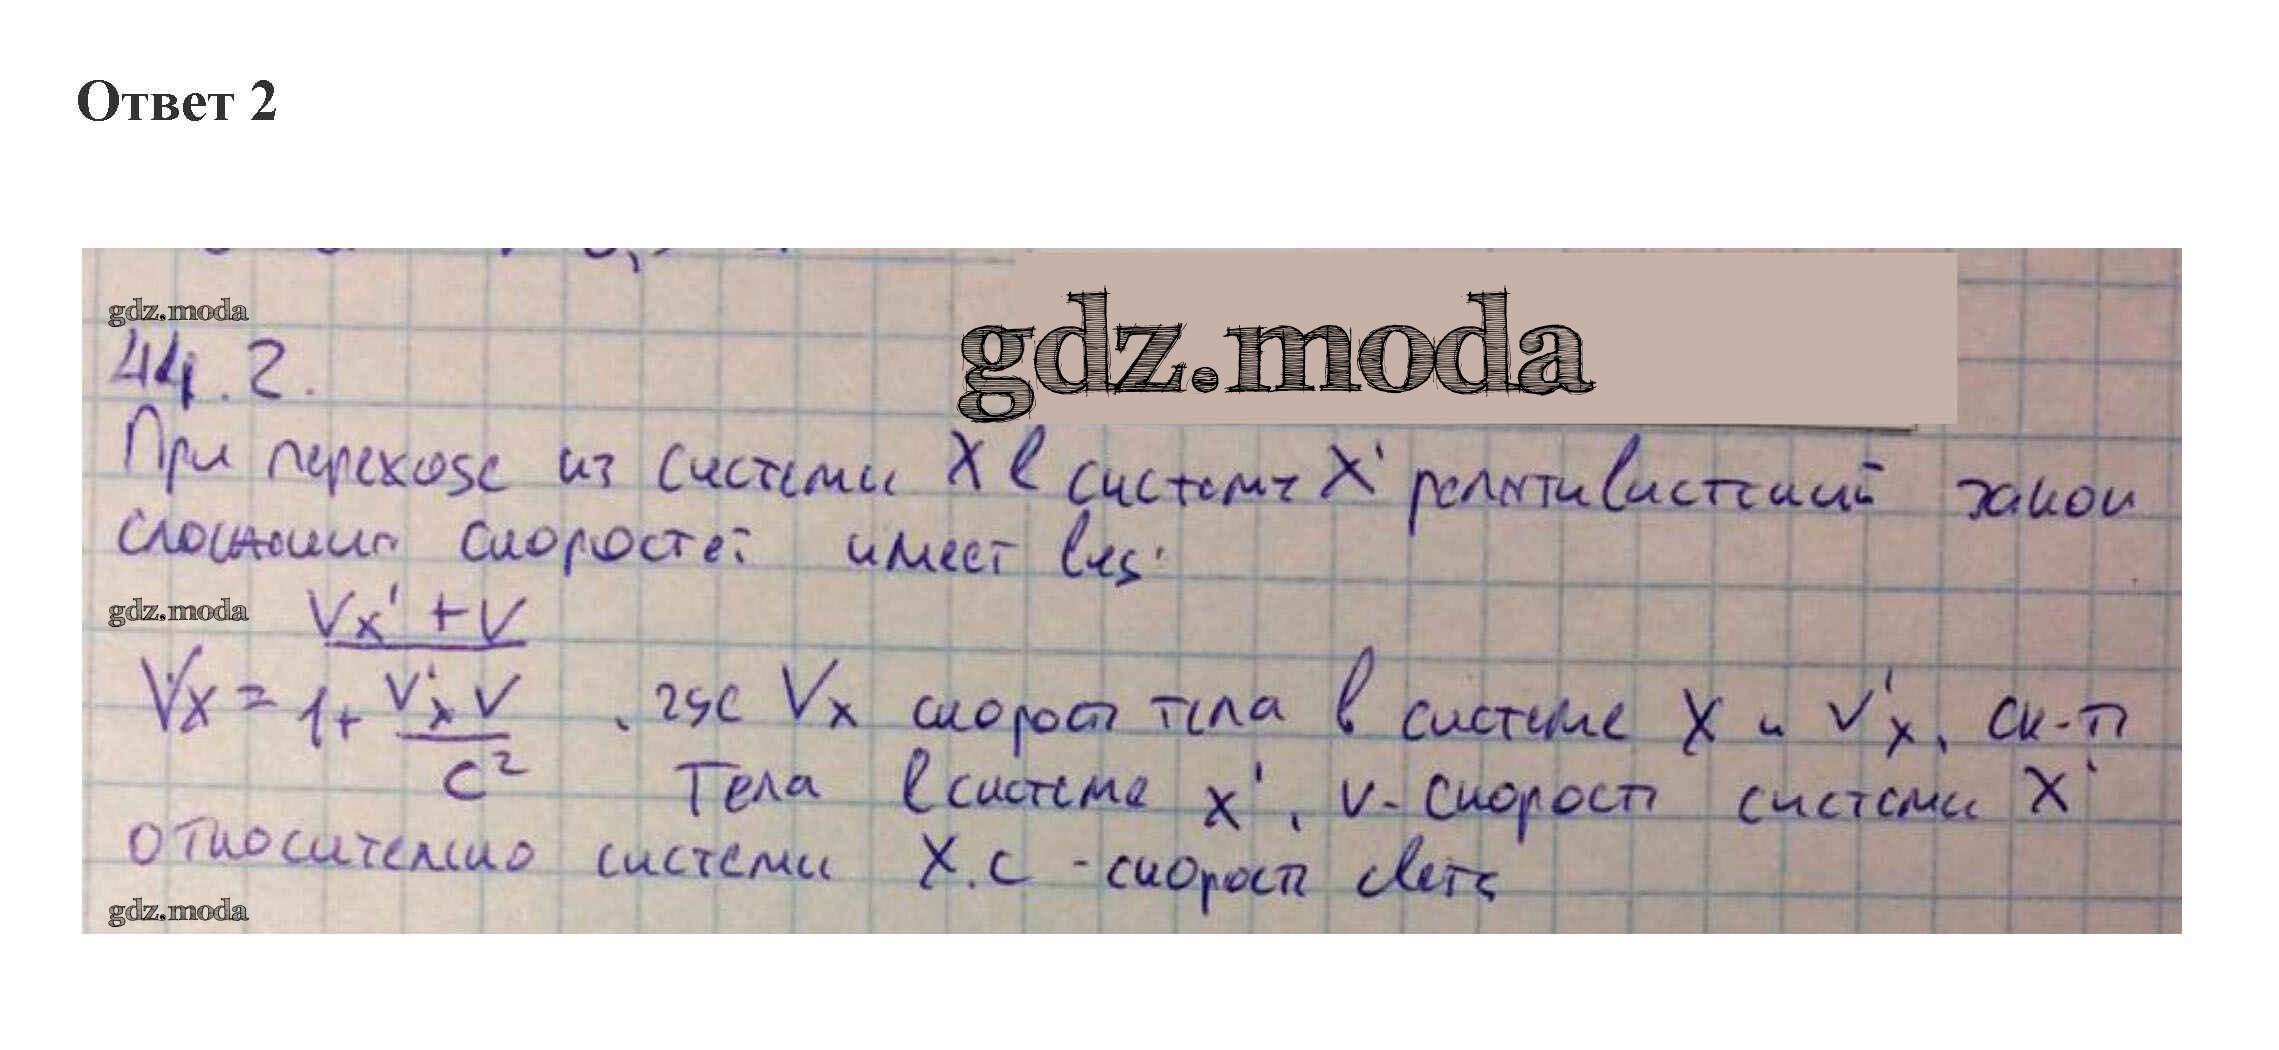 Ответ 2
gdz.moda
gdz.moda
44.2.
При переходе из системы X в систему X' релятивистский закон
сложения скоростей имеет вид:
gdz.moda
Vx'+V
Vx = 1+ V'x V , где Vx скорость тела в системе X и V'x, ск-ть
c²
Тела в системе x', v- скорость системы X'
относительно системы X. c - скорость света
gdz.moda